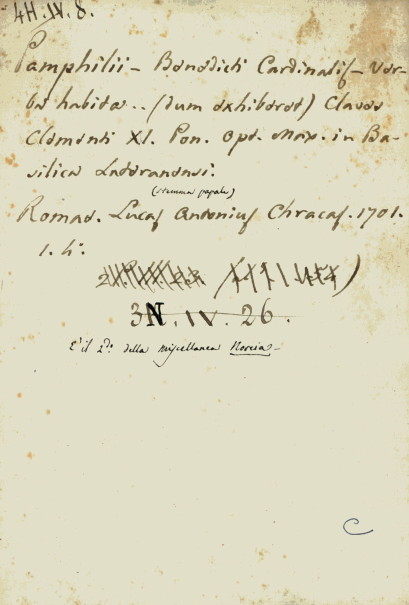 4H.IV.8.
Pamphilii - Benedicti Cardinalis - Ver-
ba habita .. (dum exhiberet) Claves
Clementi XI. Pon. Opt. Max. in Ba-
silica Lateranensi.
(stemma papale)
Romae. Lucas Antonius Chracas. 1701.
1. 4°.
3N.IV.26.
E' il 2do. della Miscellanea Norcia -
C